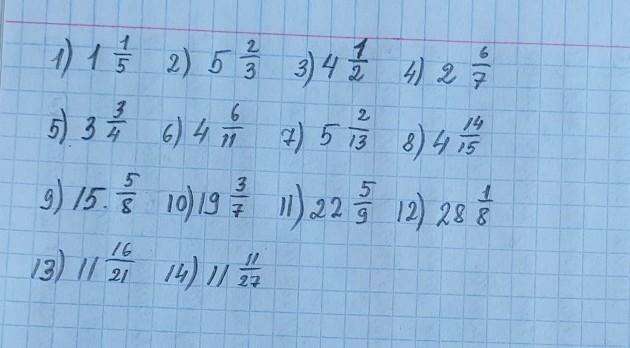 1) 1 1/5 2) 5 2/3 3) 4 1/2 4) 2 6/7
5) 3 3/4 6) 4 6/11 7) 5 2/13 8) 4 14/15
9) 15 5/8 10) 19 3/7 11) 22 5/9 12) 28 1/8
13) 11 16/21 14) 11 11/27